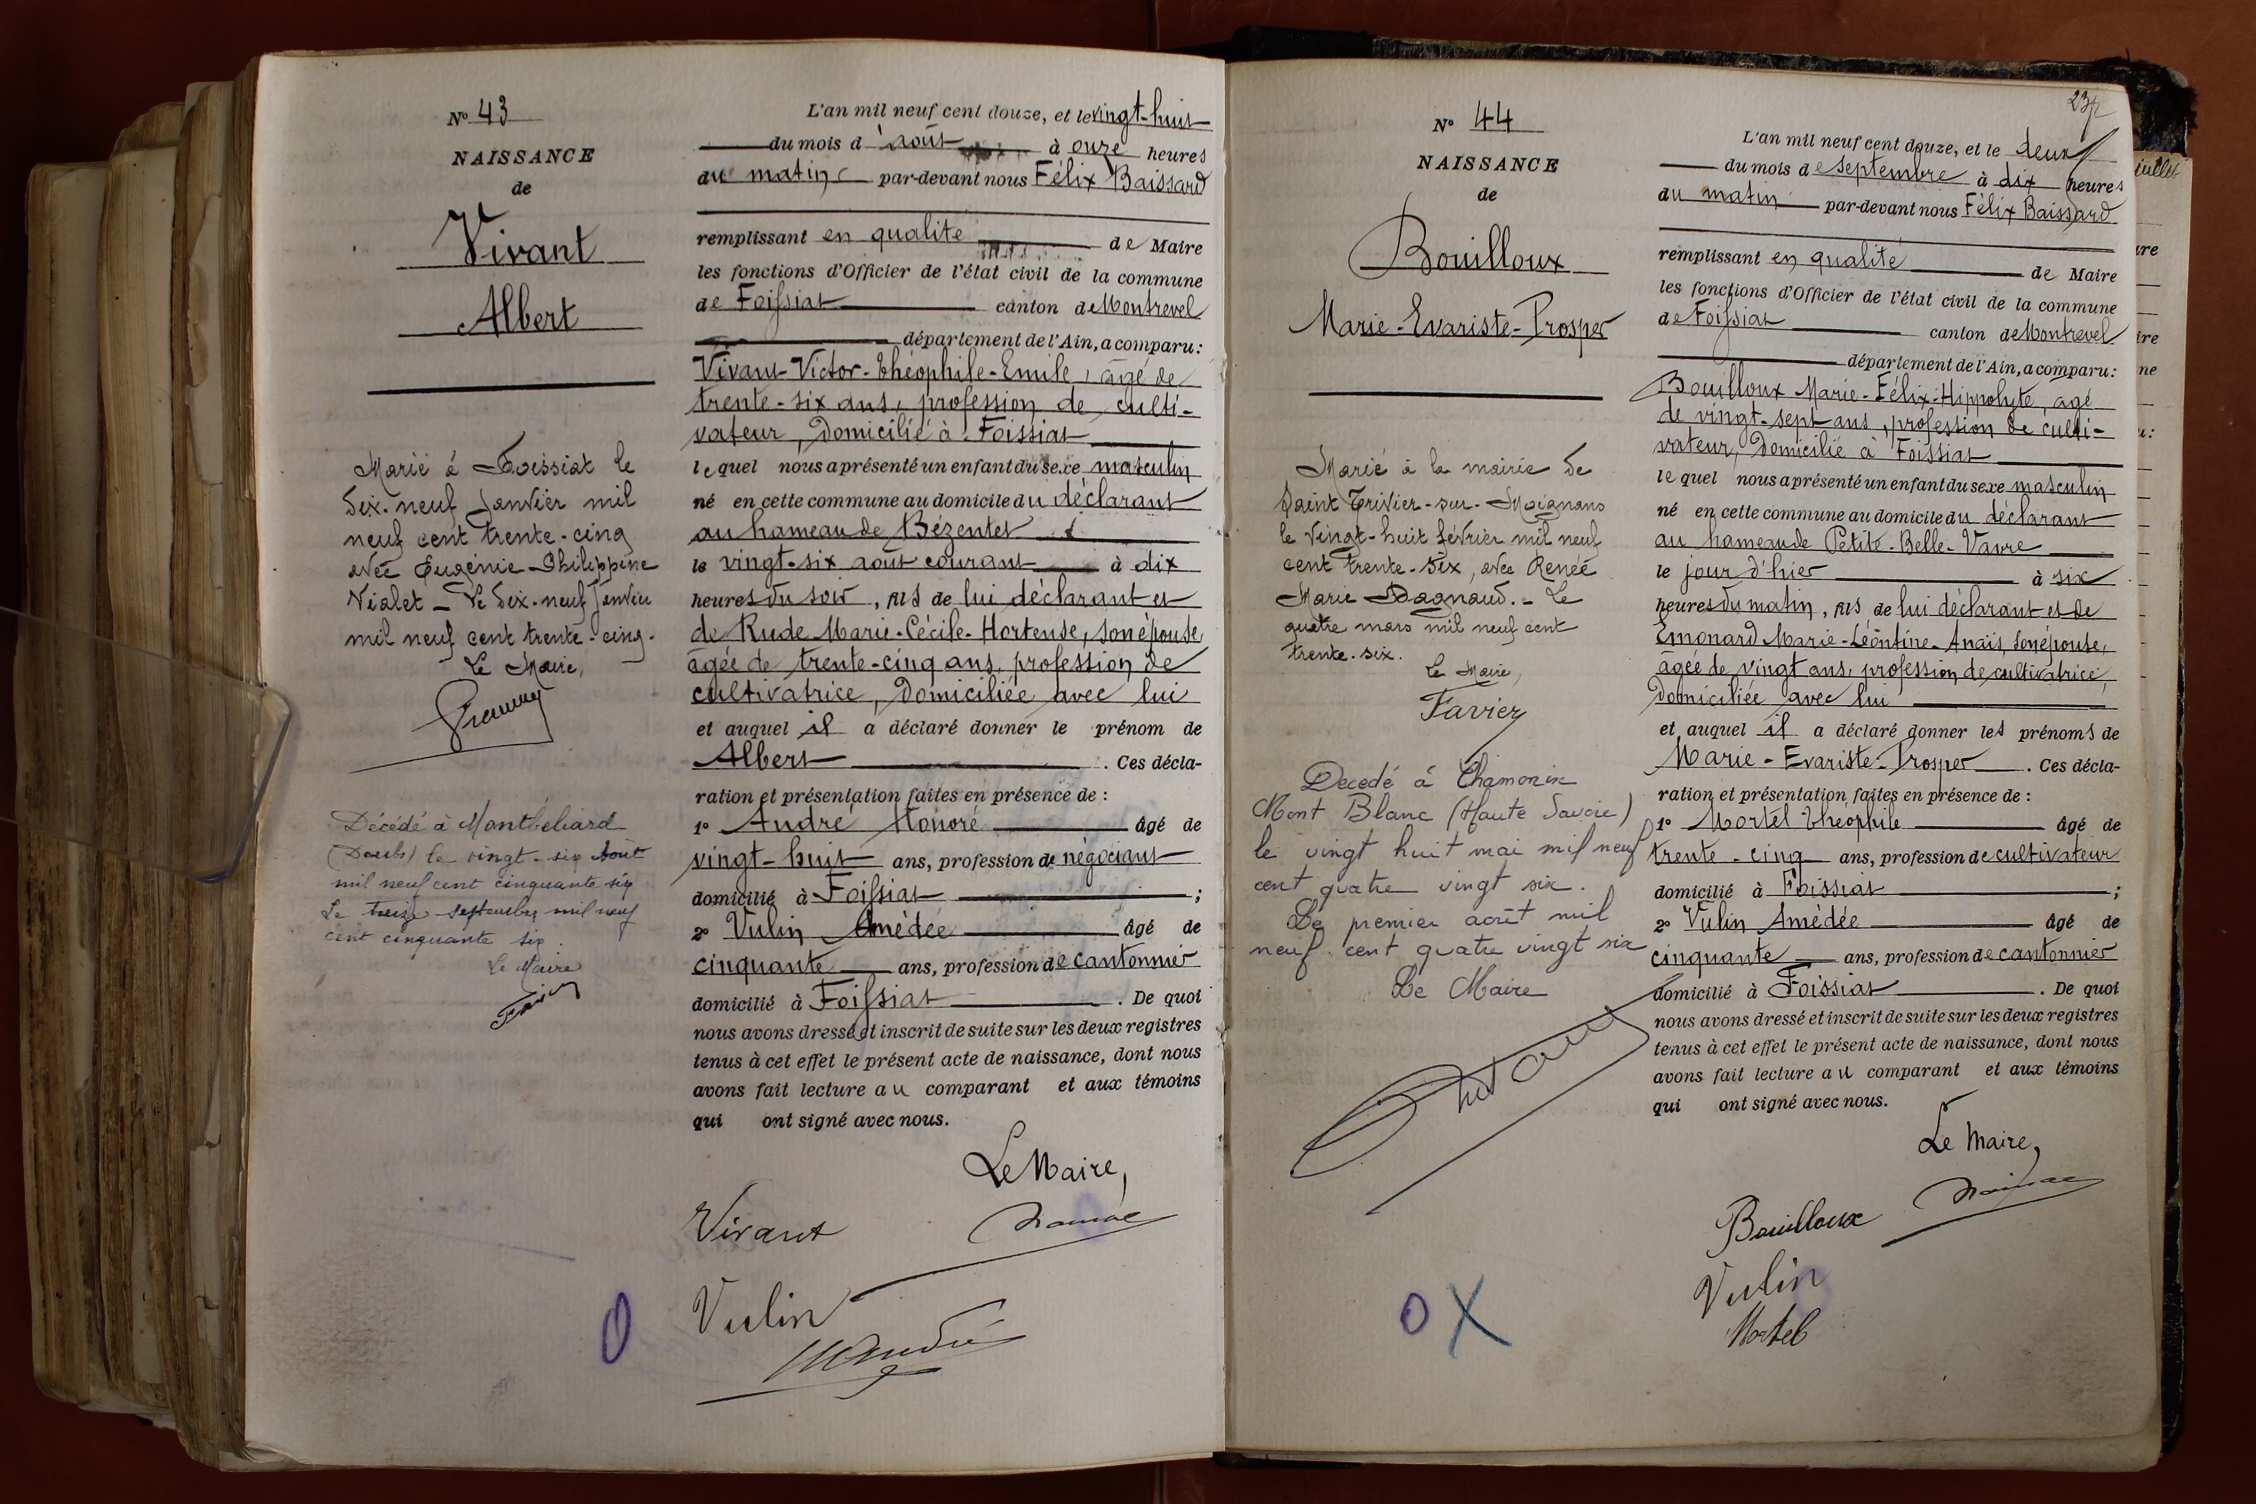 No 43
NAISSANCE
de
Vivant
Albert
Marié à Foissiat le
dix-neuf Janvier mil
neuf cent trente-cinq
avec Eugénie Philippine
Vialet - Le dix-neuf Janvier
mil neuf cent trente-cinq-
Le Maire,
Décédé à Montbéliard
(Doubs) le vingt-six Aout
mil neuf cent cinquante six
Le treize septembre mil neuf
cent cinquante six.
Le Maire
L'an mil neuf cent douze, et le vingt-huit
du mois d'août à onze heures
du matin par-devant nous Félix Baissard
remplissant en qualité de Maire
les fonctions d'Officier de l'état civil de la commune
de Foissiat canton de Montrevel
département de l'Ain, a comparu:
Vivant Victor-Théophile-Emile, âgé de
trente-six ans, profession de culti-
vateur, domicilié à Foissiat
lequel nous a présenté un enfant du sexe masculin
né en cette commune au domicile du déclarant
au hameau de Bézentet
le vingt-six août courant à dix
heures du soir, fils de lui déclarant et
de Rude Marie-Cécile-Hortense, son épouse,
âgée de trente-cinq ans, profession de
cultivatrice, domiciliée avec lui
et auquel il a déclaré donner le prénom de
Albert. Ces décla-
ration et présentation faites en présence de:
1° André Honoré âgé de
vingt-huit ans, profession de négociant
domicilié à Foissiat;
2° Vulin Amédée âgé de
cinquante ans, profession de cantonnier
domicilié à Foissiat. De quoi
nous avons dressé et inscrit de suite sur les deux registres
tenus à cet effet le présent acte de naissance, dont nous
avons fait lecture au comparant et aux témoins
qui ont signé avec nous.
Le Maire,
Vivant
Vulin
No 44
NAISSANCE
de
Bouilloux
Marie-Evariste-Prosper
Marié à la mairie de
Saint Trivier-sur-Moignans
le vingt-huit février mil neuf
cent trente-six, avec Renée
Marie Dagnaud.- Le
quatre mars mil neuf cent
trente-six.
Le Maire,
Favier
Decedé à Chamonix
Mont Blanc (Haute Savoie)
le vingt huit mai mil neuf
cent quatre vingt six.
Le premier août mil
neuf cent quatre vingt six
Le Maire
L'an mil neuf cent douze, et le deux
du mois de septembre à dix heures
du matin par-devant nous Félix Baissard
remplissant en qualité de Maire
les fonctions d'Officier de l'état civil de la commune
de Foissiat canton de Montrevel
département de l'Ain, a comparu:
Bouilloux Marie-Félix-Hippolyte, âgé
de vingt-sept ans, profession de culti-
vateur, domicilié à Foissiat
lequel nous a présenté un enfant du sexe masculin
né en cette commune au domicile du déclarant
au hameau de Petite-Belle-Vavre
le jour d'hier à six
heures du matin, fils de lui déclarant et de
Emonard Marie-Léontine-Anaïs, son épouse,
âgée de vingt ans, profession de cultivatrice,
domiciliée avec lui
et auquel il a déclaré donner les prénoms de
Marie-Evariste-Prosper. Ces décla-
ration et présentation faites en présence de:
1° Mortel Théophile âgé de
trente-cinq ans, profession de cultivateur
domicilié à Foissiat;
2° Vulin Amédée âgé de
cinquante ans, profession de cantonnier
domicilié à Foissiat. De quoi
nous avons dressé et inscrit de suite sur les deux registres
tenus à cet effet le présent acte de naissance, dont nous
avons fait lecture au comparant et aux témoins
qui ont signé avec nous.
Le Maire,
Bouilloux
Vulin
Mortel
juillet